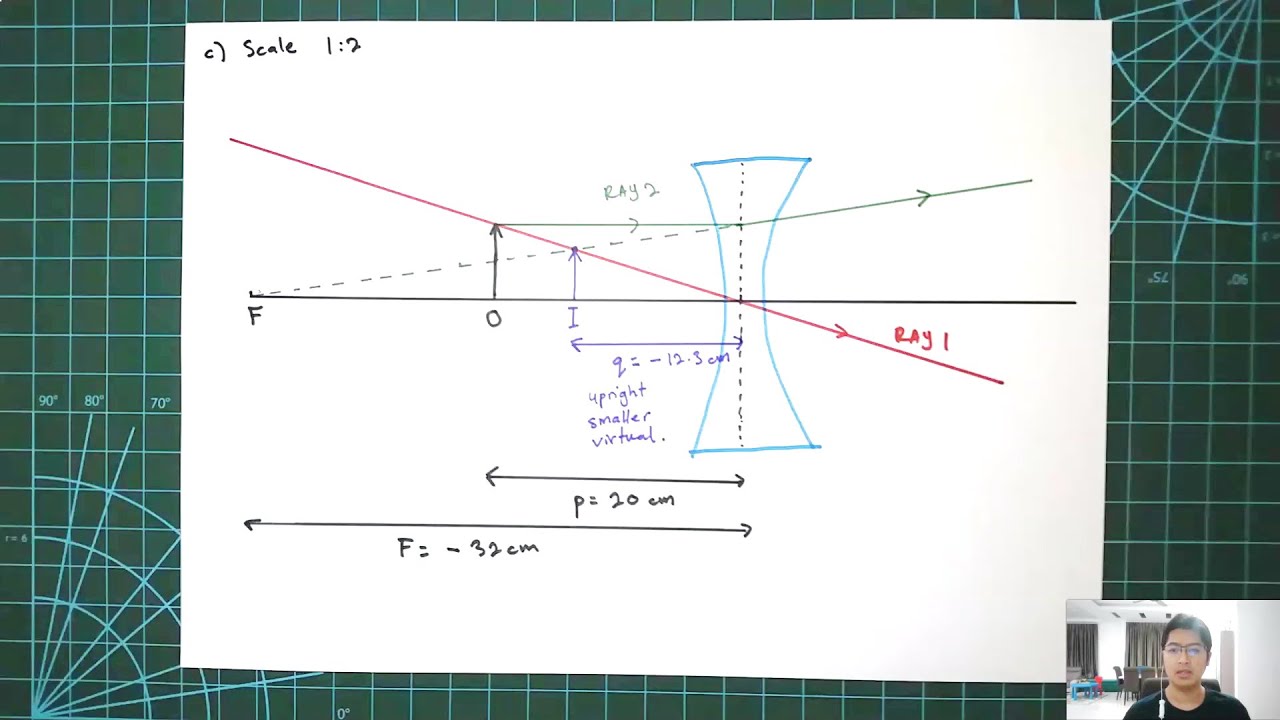 c) Scale 1:2
RAY 2
F
O
I
RAY 1
q = -12.3 cm
upright
smaller
virtual.
p = 20 cm
F = - 32 cm
90° 80° 70°
75°
90°
r = 6
0°